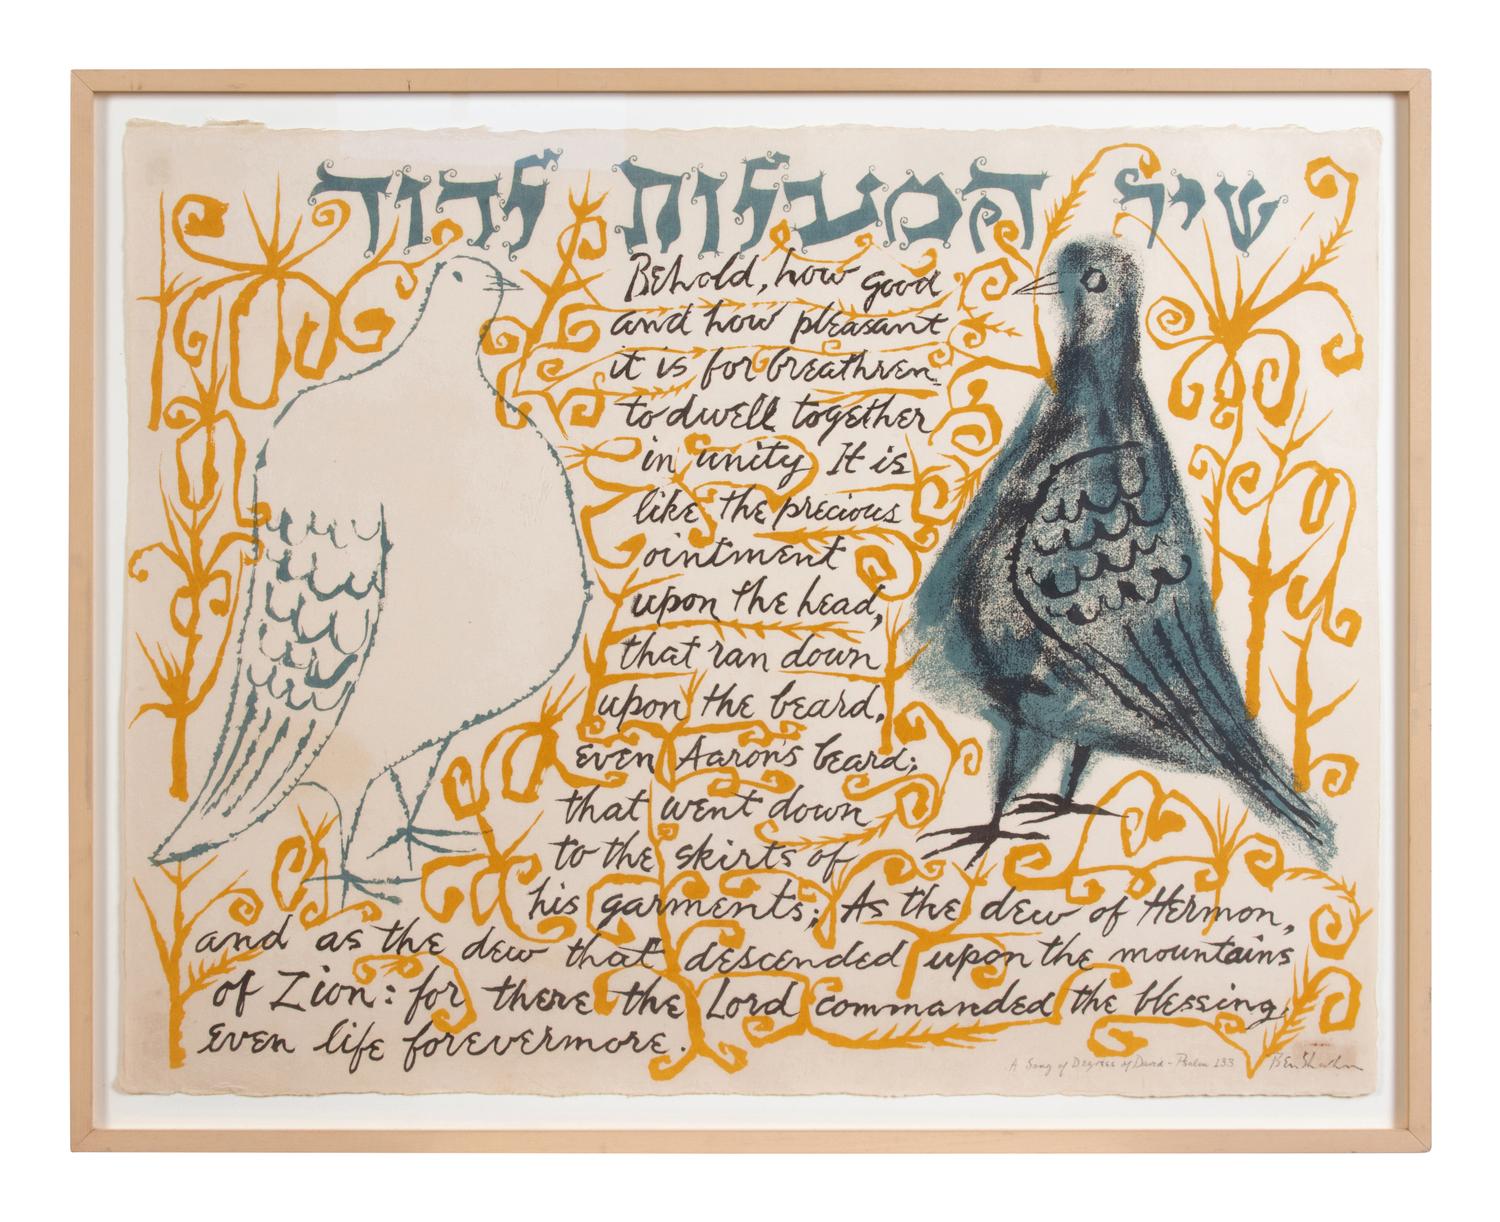 שיר המעלות לדוד
Behold, how good
and how pleasant
it is for breathren
to dwell together
in unity It is
like the precious
ointment
upon the head,
that ran down
upon the beard,
even Aaron's beard;
that went down
to the skirts of
his garments; As the dew of Hermon,
and as the dew that descended upon the mountains
of Zion: for there the Lord commanded the blessing,
even life forevermore.
A Song of Degrees of David - Psalm 133 Ben Shahn